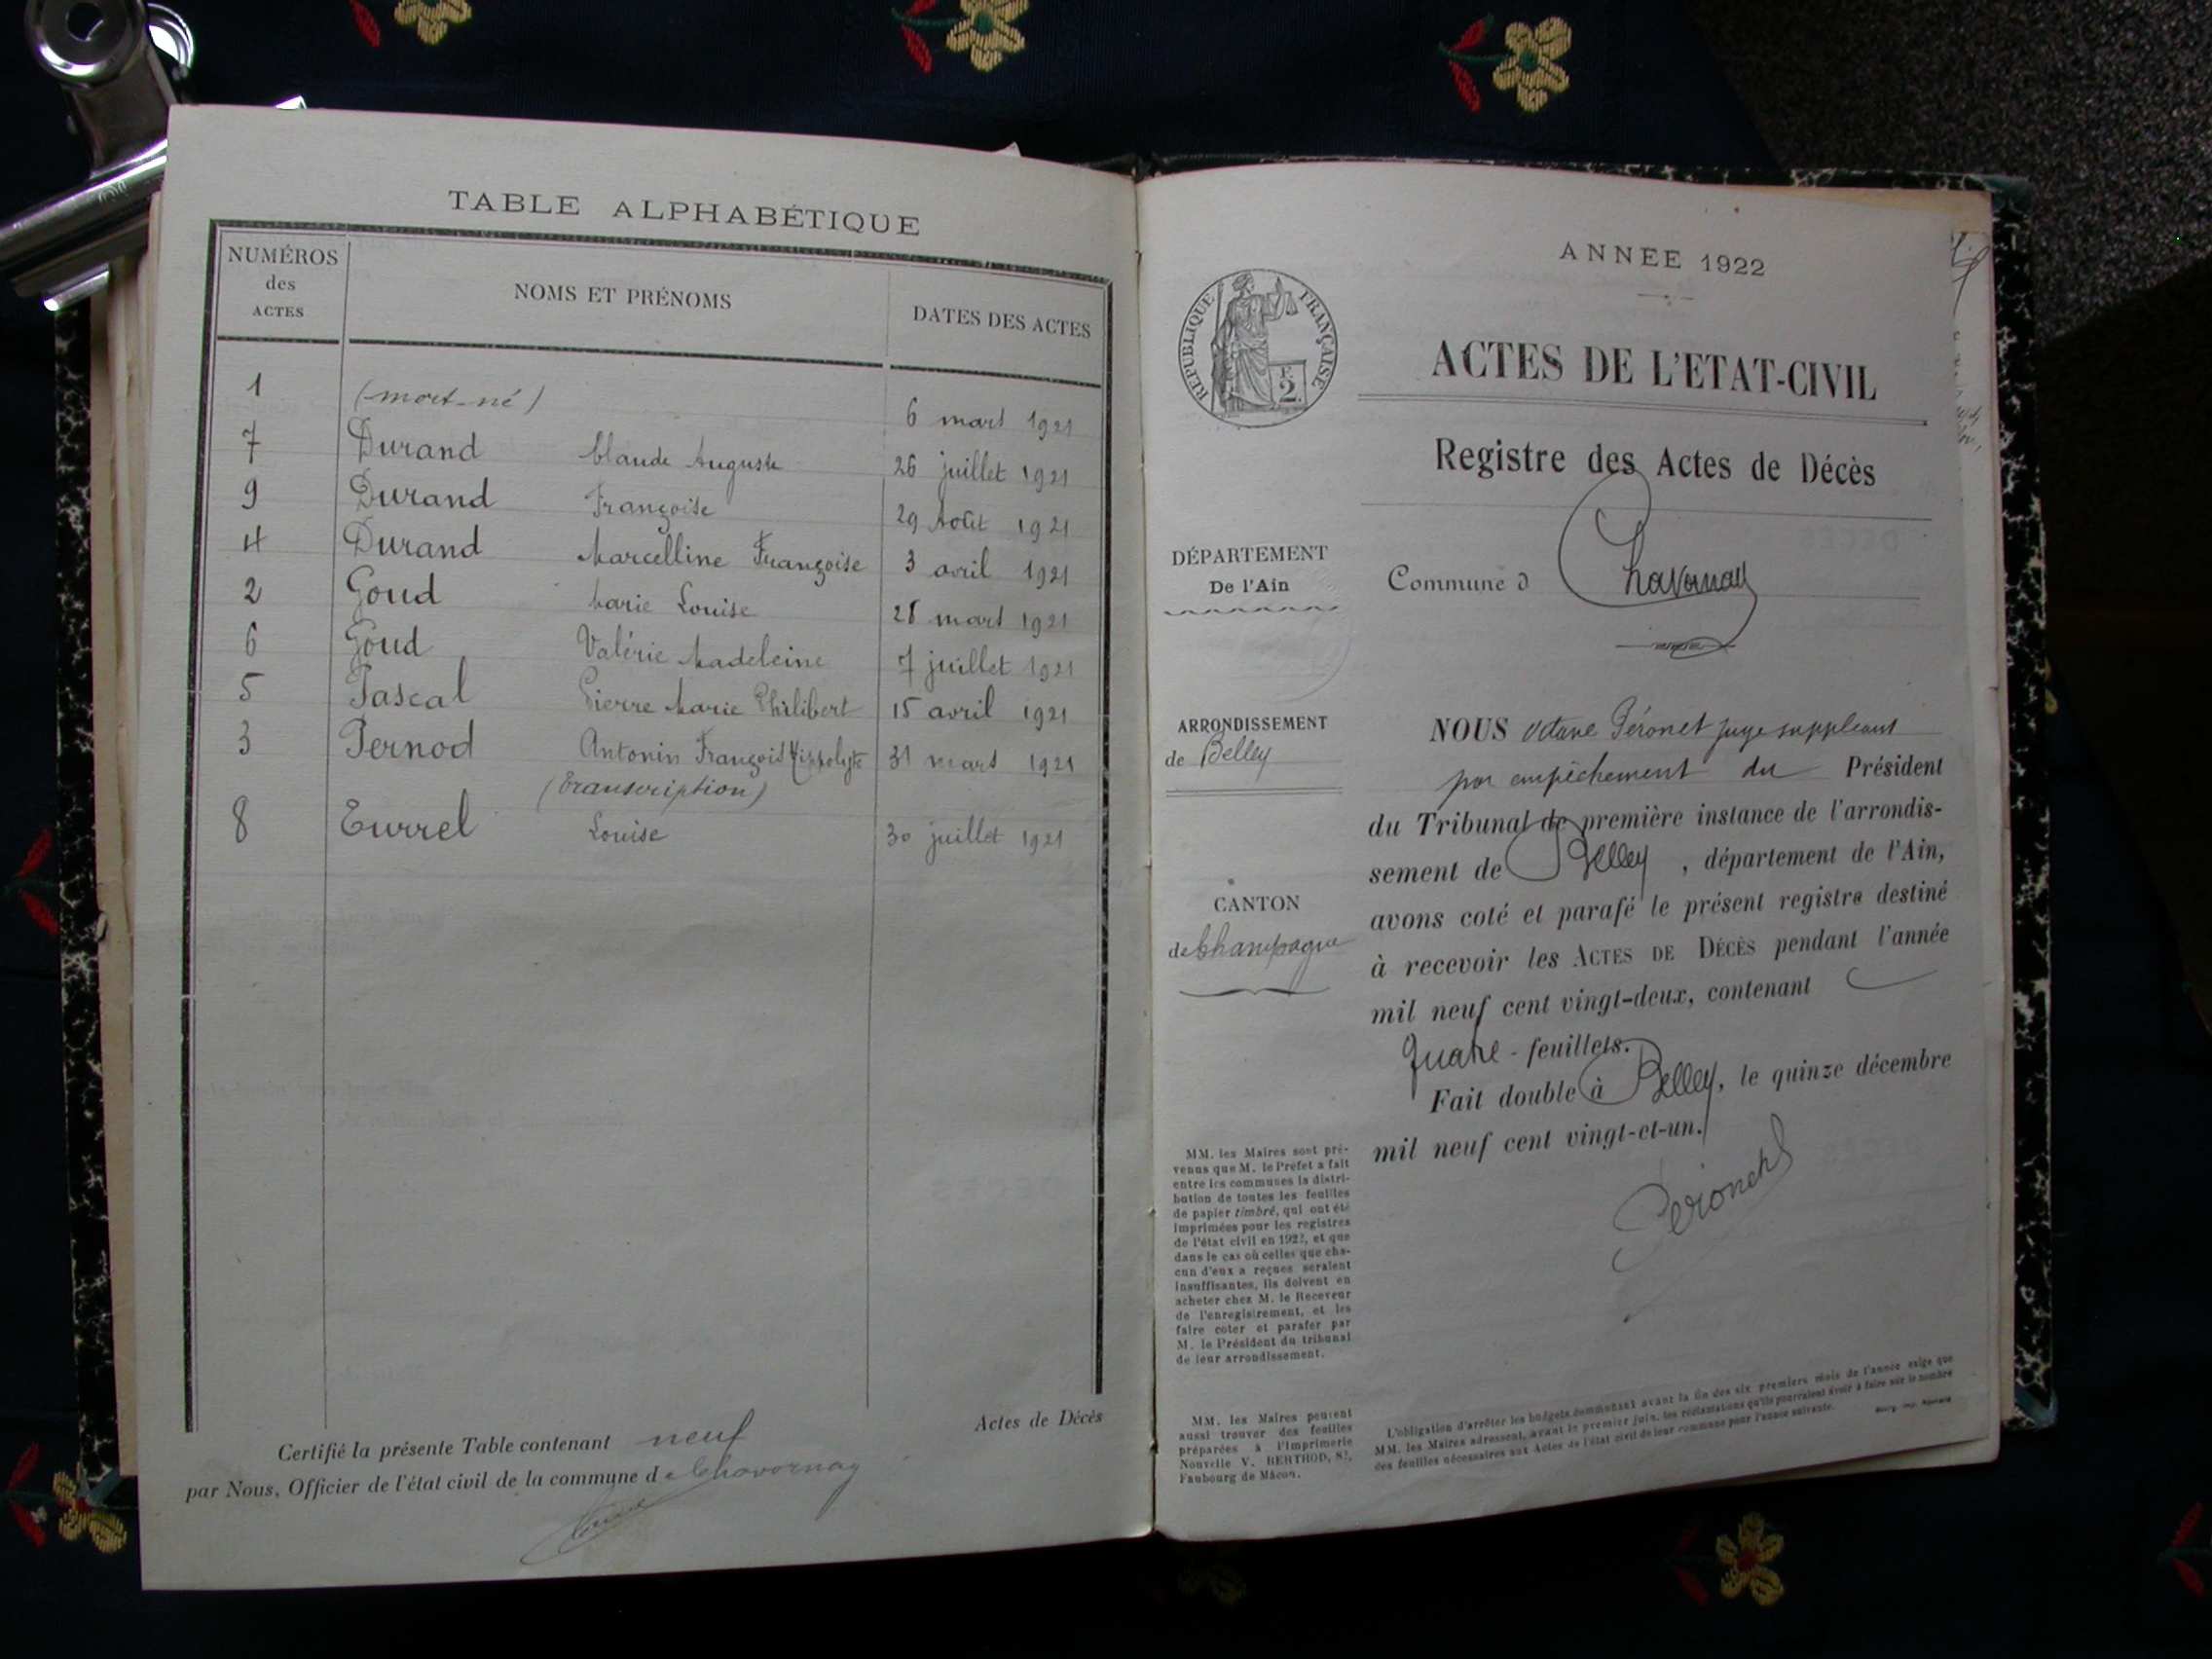 TABLE ALPHABÉTIQUE
NUMÉROS des ACTES NOMS ET PRÉNOMS DATES DES ACTES
1 (mort-né) 6 mars 1921
7 Durand Claude Auguste 26 juillet 1921
9 Durand Françoise 29 Août 1921
4 Durand Marcelline Françoise 3 avril 1921
2 Goud Marie Louise 28 mars 1921
6 Goud Valérie Madeleine 7 juillet 1921
5 Pascal Pierre Marie Philibert 15 avril 1921
3 Pernod Antonin François Hippolyte 31 mars 1921
(transcription)
8 Turrel Louise 30 juillet 1921
Actes de Décès
Certifié la présente Table contenant neuf
par Nous, Officier de l'état civil de la commune de Chavornay
ANNÉE 1922
RÉPUBLIQUE FRANÇAISE
2
ACTES DE L'ETAT-CIVIL
Registre des Actes de Décès
DÉPARTEMENT
De l'Ain
Commune d Chavornay
ARRONDISSEMENT
de Belley
CANTON
de Champagne
NOUS Octave Péronet juge suppléant
par empêchement du Président
du Tribunal de première instance de l'arrondis-
sement de Belley, département de l'Ain,
avons coté et parafé le présent registre destiné
à recevoir les ACTES DE DÉCÈS pendant l'année
mil neuf cent vingt-deux, contenant
quatre - feuillets.
Fait double à Belley, le quinze décembre
mil neuf cent vingt-et-un.
MM. les Maires sont pré-
venus que M. le Préfet a fait
entre les communes la distri-
bution de toutes les feuilles
de papier timbré, qui ont été
imprimées pour les registres
de l'état civil en 1922, et que
dans le cas où celles que cha-
cun d'eux a reçues seraient
insuffisantes, ils doivent en
acheter chez M. le Receveur
de l'enregistrement, et les
faire coter et parafer par
M. le Président du tribunal
de leur arrondissement.
MM. les Maires peuvent
aussi trouver des feuilles
préparées à l'Imprimerie
Nouvelle V. BERTHOD,
Faubourg de Mâcon.
L'obligation d'arrêter les budgets communaux avant la fin des six premiers mois de l'année exige que
MM. les Maires adressent, avant le premier juin, les réclamations qu'ils pourraient avoir à faire sur le nombre
des feuilles nécessaires aux Actes de l'état civil de leur commune pour l'année suivante.